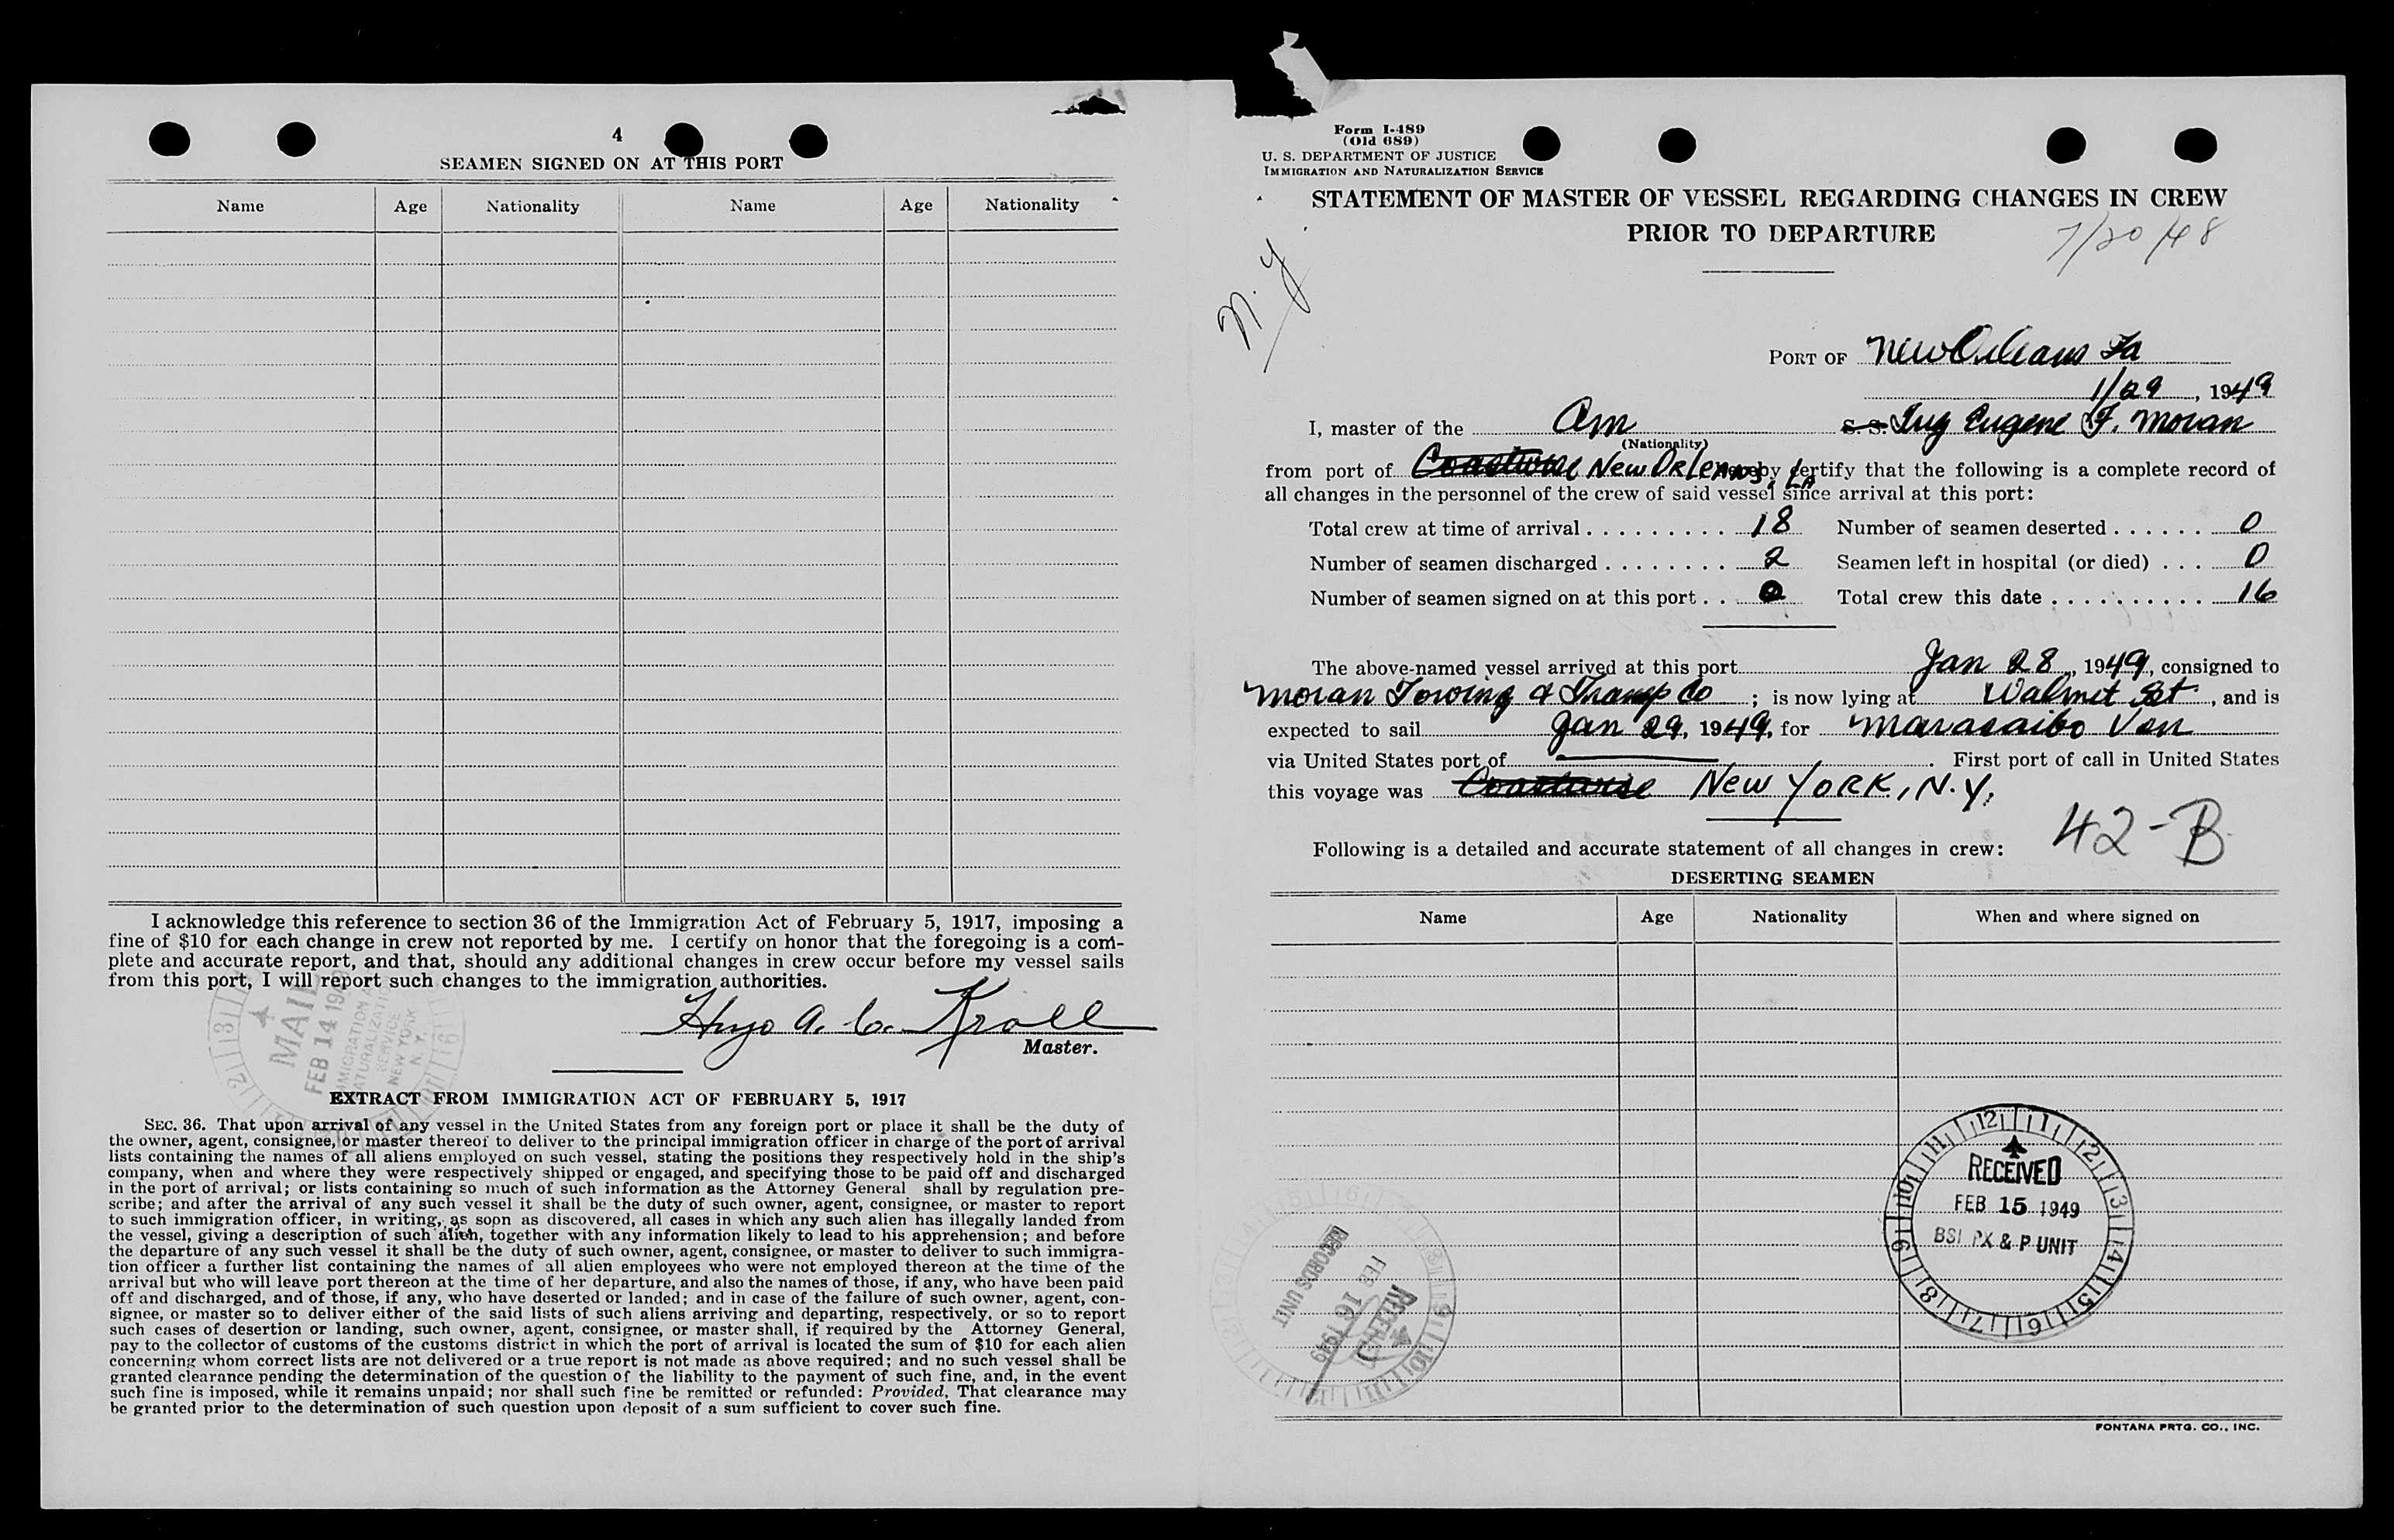 4
SEAMEN SIGNED ON AT THIS PORT
Name Age Nationality Name Age Nationality
I acknowledge this reference to section 36 of the Immigration Act of February 5, 1917, imposing a
fine of $10 for each change in crew not reported by me. I certify on honor that the foregoing is a com-
plete and accurate report, and that, should any additional changes in crew occur before my vessel sails
from this port, I will report such changes to the immigration authorities.
Hugo A. C. Kroll
Master.
MAIL
FEB 14 1949
IMMIGRATION &
NATURALIZATION
SERVICE
NEW YORK
N. Y.
EXTRACT FROM IMMIGRATION ACT OF FEBRUARY 5, 1917
SEC. 36. That upon arrival of any vessel in the United States from any foreign port or place it shall be the duty of
the owner, agent, consignee, or master thereof to deliver to the principal immigration officer in charge of the port of arrival
lists containing the names of all aliens employed on such vessel, stating the positions they respectively hold in the ship's
company, when and where they were respectively shipped or engaged, and specifying those to be paid off and discharged
in the port of arrival; or lists containing so much of such information as the Attorney General shall by regulation pre-
scribe; and after the arrival of any such vessel it shall be the duty of such owner, agent, consignee, or master to report
to such immigration officer, in writing, as soon as discovered, all cases in which any such alien has illegally landed from
the vessel, giving a description of such alien, together with any information likely to lead to his apprehension; and before
the departure of any such vessel it shall be the duty of such owner, agent, consignee, or master to deliver to such immigra-
tion officer a further list containing the names of all alien employees who were not employed thereon at the time of the
arrival but who will leave port thereon at the time of her departure, and also the names of those, if any, who have been paid
off and discharged, and of those, if any, who have deserted or landed; and in case of the failure of such owner, agent, con-
signee, or master so to deliver either of the said lists of such aliens arriving and departing, respectively, or so to report
such cases of desertion or landing, such owner, agent, consignee, or master shall, if required by the Attorney General,
pay to the collector of customs of the customs district in which the port of arrival is located the sum of $10 for each alien
concerning whom correct lists are not delivered or a true report is not made as above required; and no such vessel shall be
granted clearance pending the determination of the question of the liability to the payment of such fine, and, in the event
such fine is imposed, while it remains unpaid; nor shall such fine be remitted or refunded: Provided, That clearance may
be granted prior to the determination of such question upon deposit of a sum sufficient to cover such fine.
Form I-489
(Old 689)
U. S. DEPARTMENT OF JUSTICE
IMMIGRATION AND NATURALIZATION SERVICE
STATEMENT OF MASTER OF VESSEL REGARDING CHANGES IN CREW
PRIOR TO DEPARTURE
7/20/48
N.Y
PORT OF New Orleans La
1/29, 1949
I, master of the Am S. S. Tug Eugene F. Moran
(Nationality)
from port of Coastwise New Orleans, LA hereby certify that the following is a complete record of
all changes in the personnel of the crew of said vessel since arrival at this port:
Total crew at time of arrival . . . . . . . . . 18 Number of seamen deserted . . . . . . 0
Number of seamen discharged . . . . . . . . 2 Seamen left in hospital (or died) . . . 0
Number of seamen signed on at this port . . 0 Total crew this date . . . . . . . . . . 16
The above-named vessel arrived at this port Jan 28, 1949, consigned to
Moran Towing & Transp Co ; is now lying at Walnut St, and is
expected to sail Jan 29, 1949, for Marasaibo Ven
via United States port of . First port of call in United States
this voyage was Coastwise New York, N.Y.
42-B
Following is a detailed and accurate statement of all changes in crew:
DESERTING SEAMEN
Name Age Nationality When and where signed on
RECEIVED
FEB 15 1949
BSI PX & P UNIT
RECEIVED
FEB 16 1949
RECORDS UNIT
FONTANA PRTG. CO., INC.